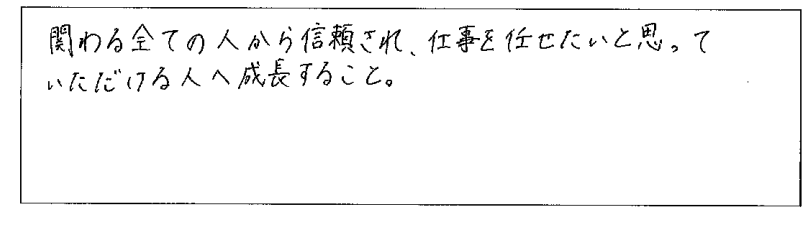 関わる全ての人から信頼され、仕事を任せたいと思って
いただける人へ成長すること。